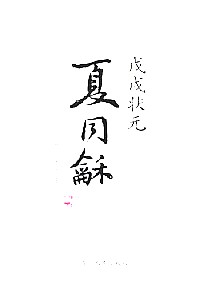 戊戌状元
夏同龢